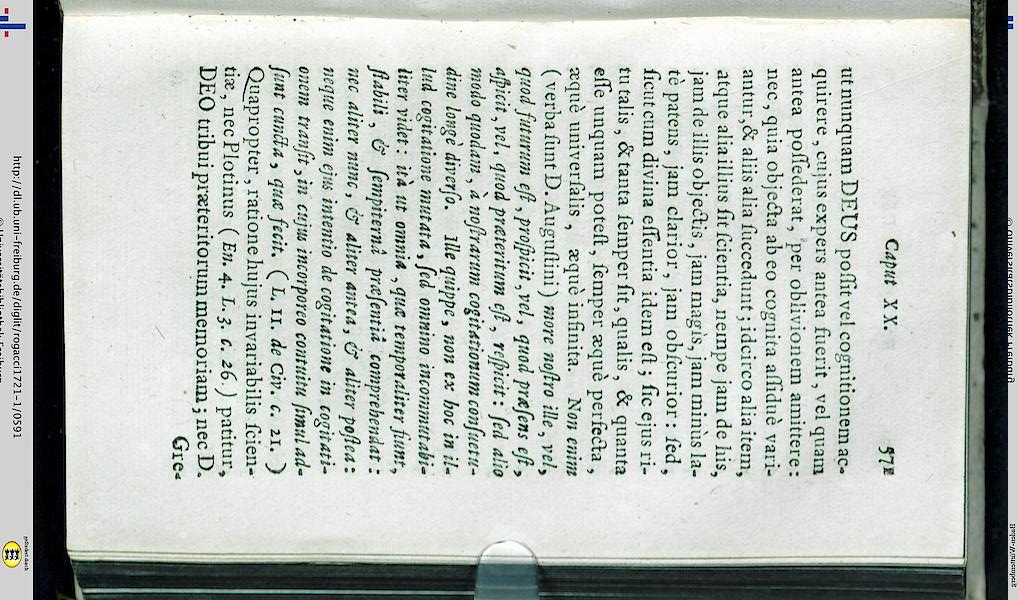 Caput XX. 571
ut nunquam DEUS poſſit vel cognitionem ac-
quirere, cujus expers antea fuerit, vel quam
antea poſſederat, per oblivionem amittere:
nec, quia objecta ab eo cognita aſſiduè vari-
antur, & aliis alia ſuccedunt; idcirco alia item,
atque alia illius ſit ſcientia, nempe jam de his,
jam de illis objectis, jam magis, jam minùs la-
tè patens, jam clarior, jam obſcurior: ſed,
ſicut cum divina eſſentia idem eſt; ſic ejus ri-
tu talis, & tanta ſemper ſit, qualis, & quanta
eſſe unquam poteſt, ſemper æquè perfecta,
æquè univerſalis, æquè infinita. Non enim
(verba ſunt D. Auguſtini) more noſtro ille, vel,
quod futurum eſt, proſpicit, vel, quod præſens eſt,
aſpicit, vel, quod præteritum eſt, reſpicit: ſed alio
modo quodam, à noſtrarum cogitationum conſuetu-
dine longè diverſo. Ille quippe, non ex hoc in il-
lud cogitatione mutata, ſed omnino incommutabi-
liter videt: ità ut omnia, quæ temporaliter fiunt,
ſtabili, & ſempiternâ præſentiâ comprehendat:
nec aliter nunc, & aliter antea, & aliter poſtea:
neque enim ejus intentio de cogitatione in cogitati-
onem tranſit, in cujus incorporeo contuitu ſimul ad-
ſunt cuncta, quæ fecit. (L. 11. de Civ. c. 21.)
Quapropter, ratione hujus invariabilis ſcien-
tiæ, nec Plotinus (En. 4. L. 3. c. 26.) patitur,
DEO tribui præteritorum memoriam; nec D.
Gre-
http://dl.ub.uni-freiburg.de/diglit/rogacci1721-1/0591
gefördert durch